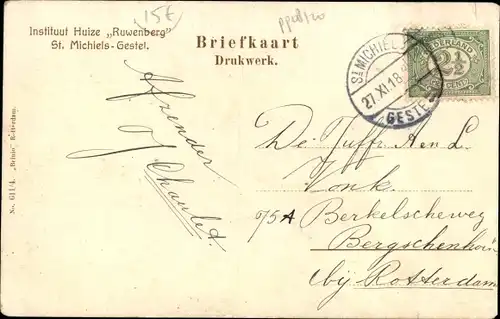 15€
Instituut Huize „Ruwenberg"
St. Michiels-Gestel.
Briefkaart
Drukwerk.
ST MICHIELS
27.XI.18
GESTEL
NEDERLAND
2½
CENT
Afzender
De Juffr A en L.
Vonk.
75A Berkelscheweg
Bergschenhoek
bij Rotterdam
No. G11/4. „Brinio" Rotterdam.